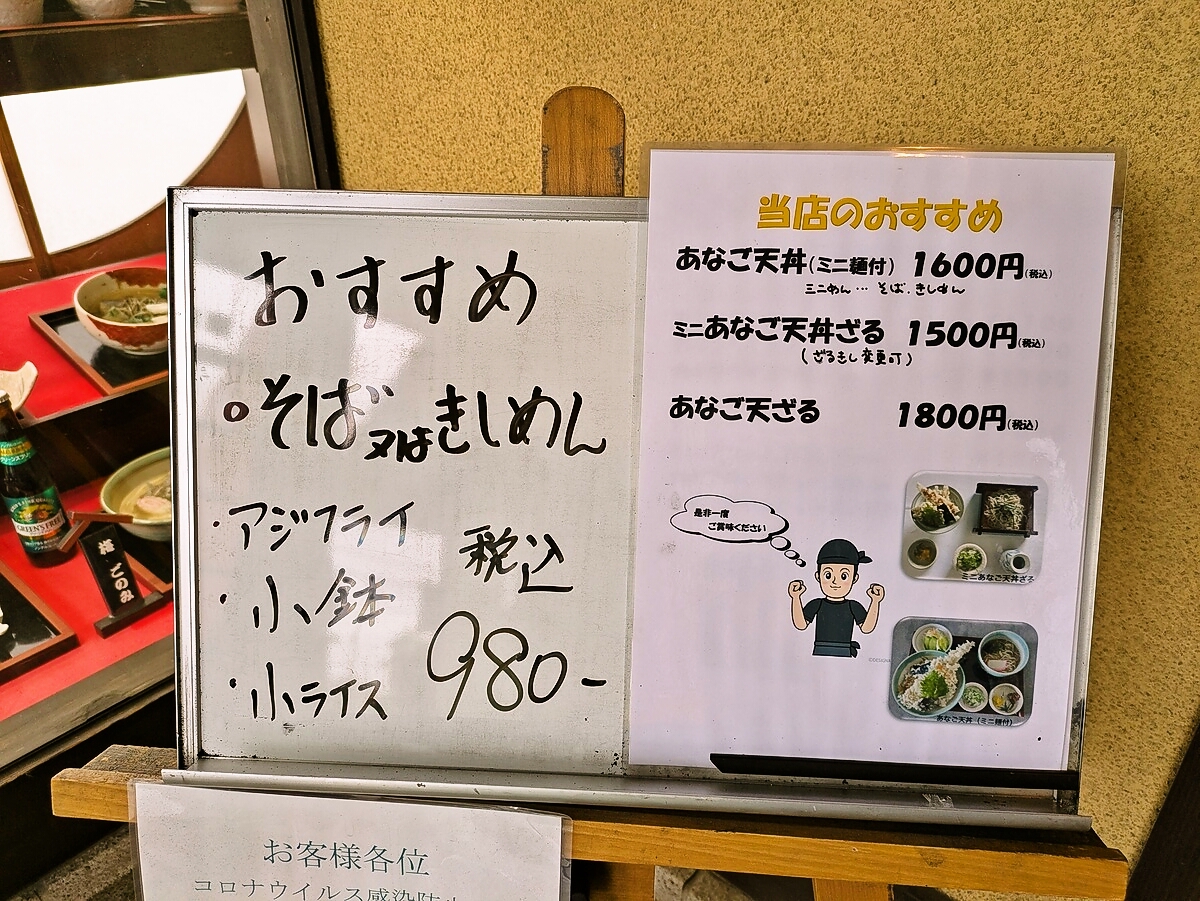 おすすめ
そば又はきしめん
・アジフライ
・小鉢
・小ライス
税込
980-
当店のおすすめ
あなご天丼(ミニ麺付) 1600円(税込)
ミニめん…そば.きしめん
ミニあなご天丼ざる 1500円(税込)
(ざるきし変更可)
あなご天ざる 1800円(税込)
是非一度
ご賞味ください
ミニあなご天丼ざる
あなご天丼(ミニ麺付)
GREEN'S FREE
ごのみ
お客様各位
コロナウイルス感染防止